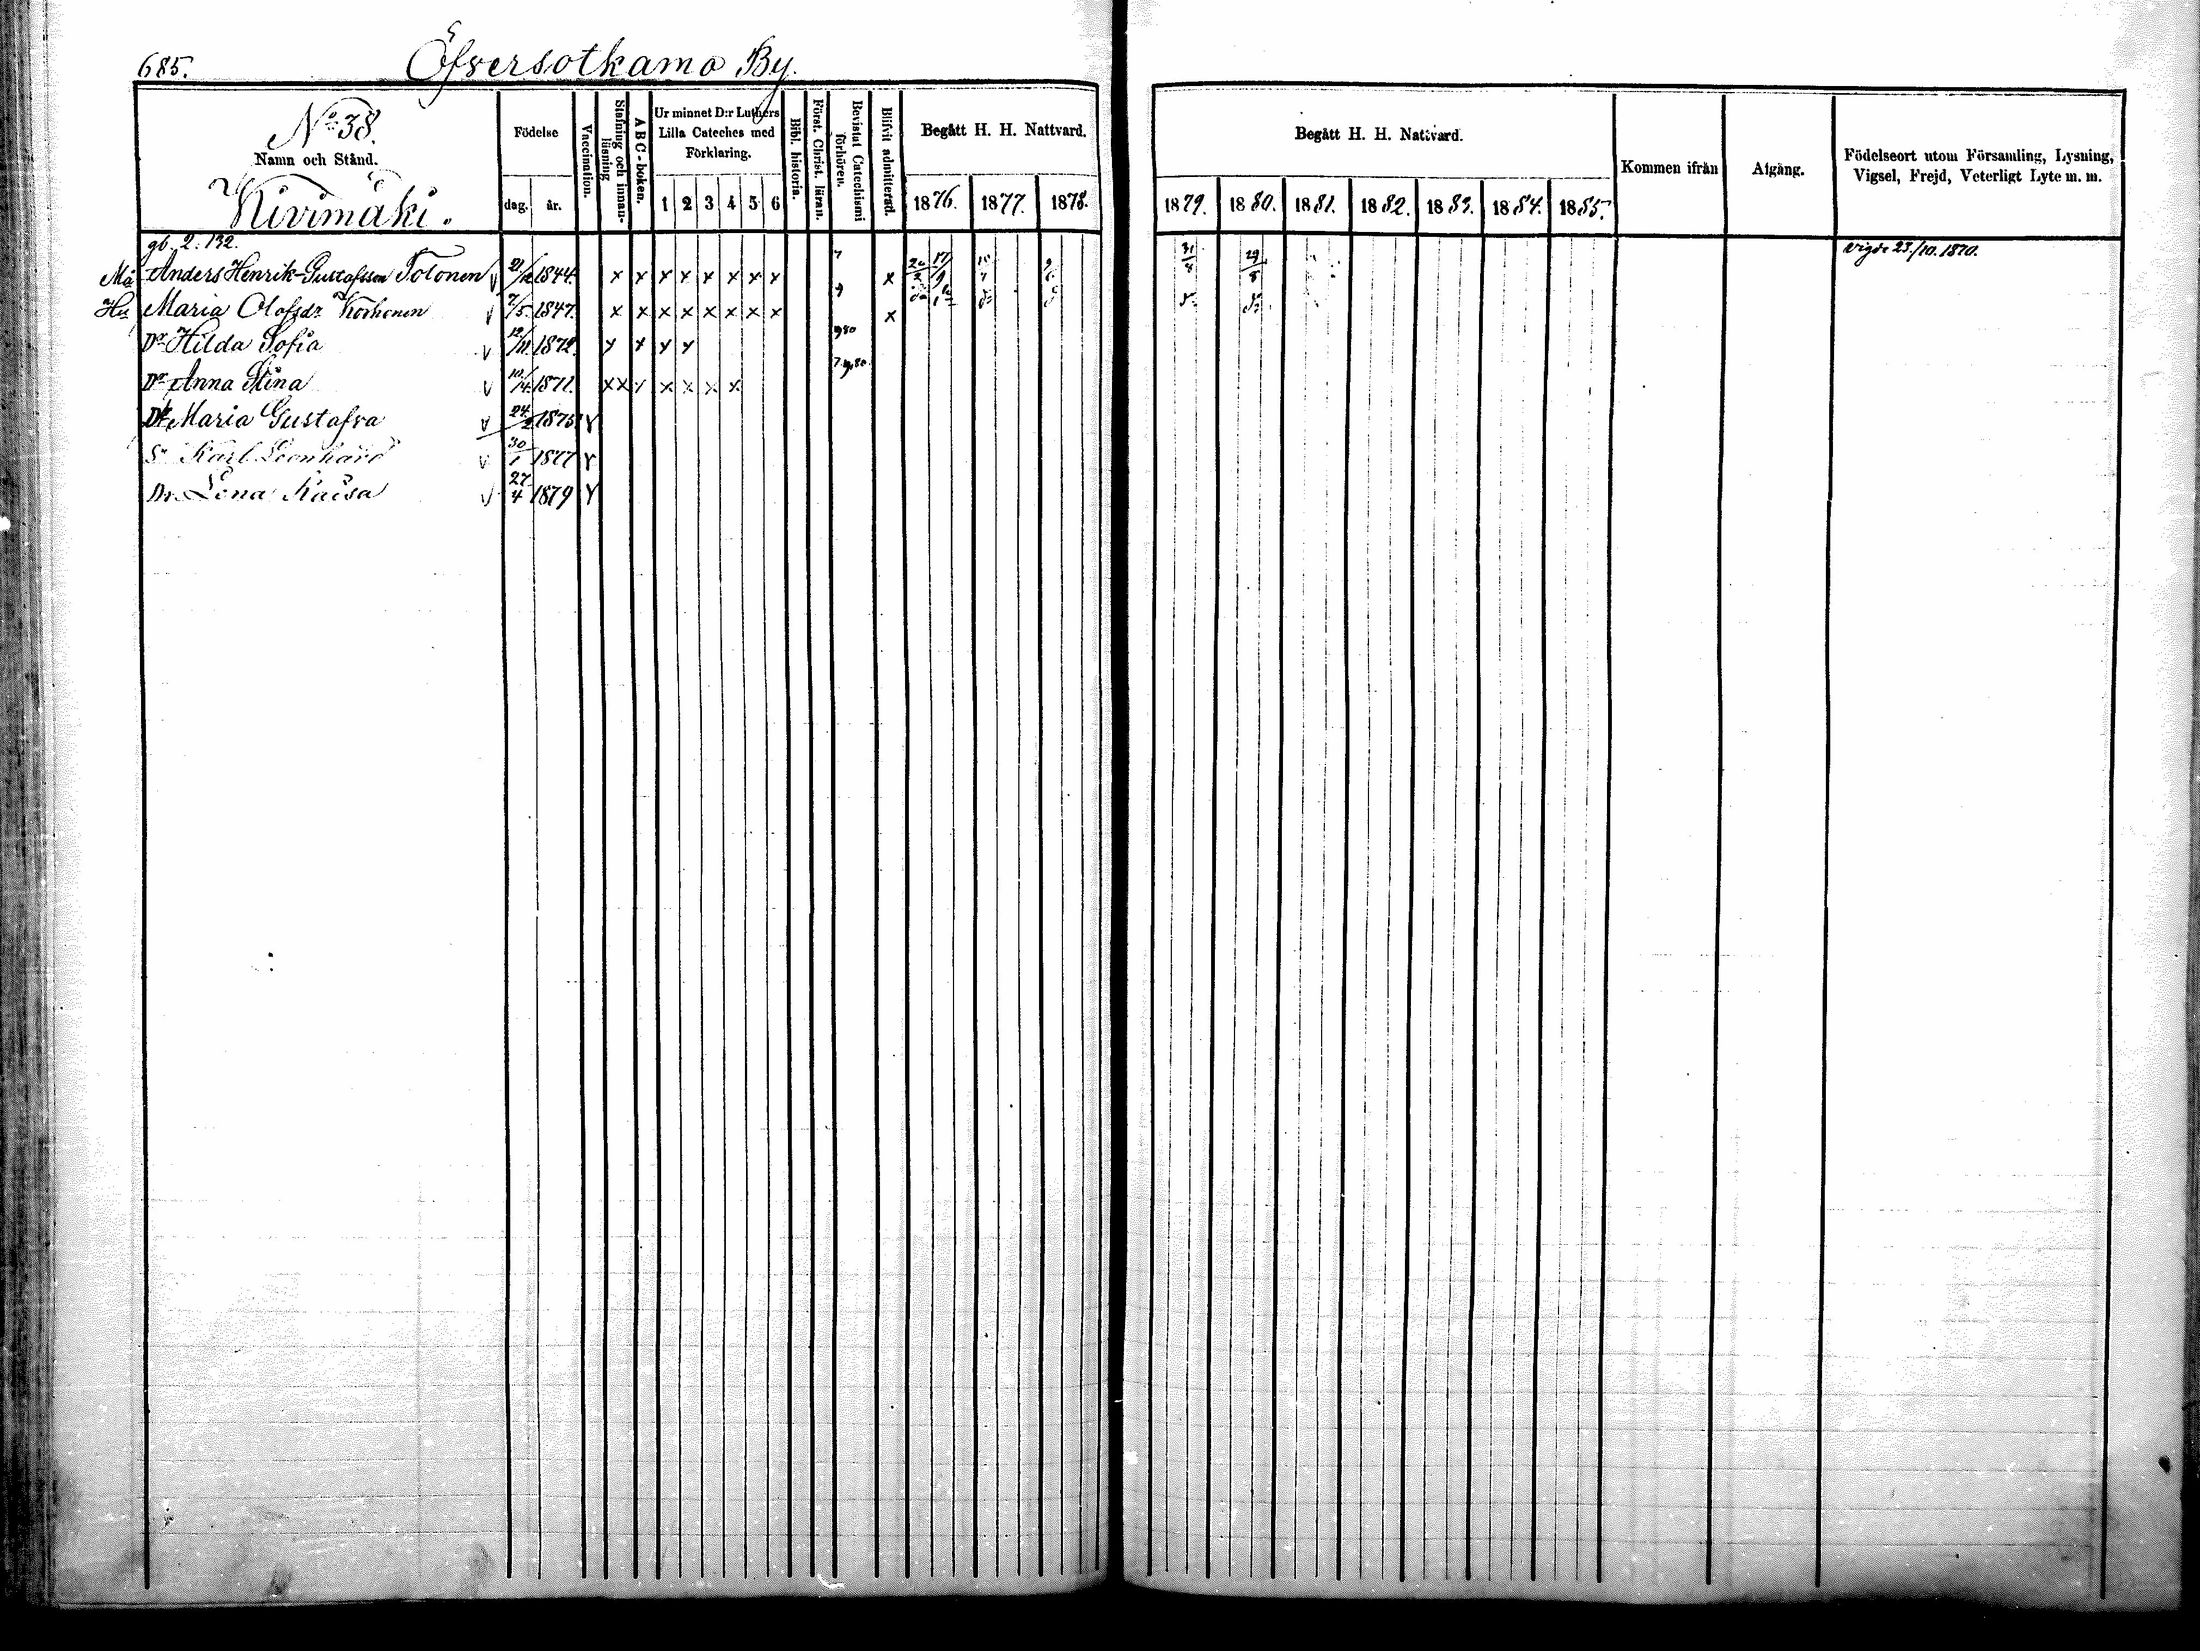 685. Öfversotkamo By.
No 38.
Namn och Stånd.
Kivimäki.
Födelse
dag. år.
Vaccination.
Stafning och innan-läsning
A B C-boken.
Ur minnet D:r Luthers Lilla Cateches med Förklaring.
1 2 3 4 5 6
Bibl. historia.
Först. Christ. läran.
Bevistat Catechismi förhören.
Blifvit admitterad.
Begått H. H. Nattvard.
1876. 1877. 1878.
Begått H. H. Nattvard.
1879. 1880. 1881. 1882. 1883. 1884. 1885.
Kommen ifrån
Afgång.
Födelseort utom Församling, Lysning, Vigsel, Frejd, Veterligt Lyte m. m.
gb. 2. 132.
Anders Henrik Gustafsson Tolonen 21/12 1844. x x x x x x x x x 31/8 29/8 vigde 23/10. 1870.
Hu Maria Olofsdr Korhonen 7/5. 1847. x x x x x x x x x
Dr Hilda Sofia 12/11 1872.
Dr Anna Stina 1871. x x x x x x x
Dr Maria Gustafva 24/2 1875.
Sn Karl Leonhard 30/1 1877
Dr. Lena Kaisa 27/4 1879